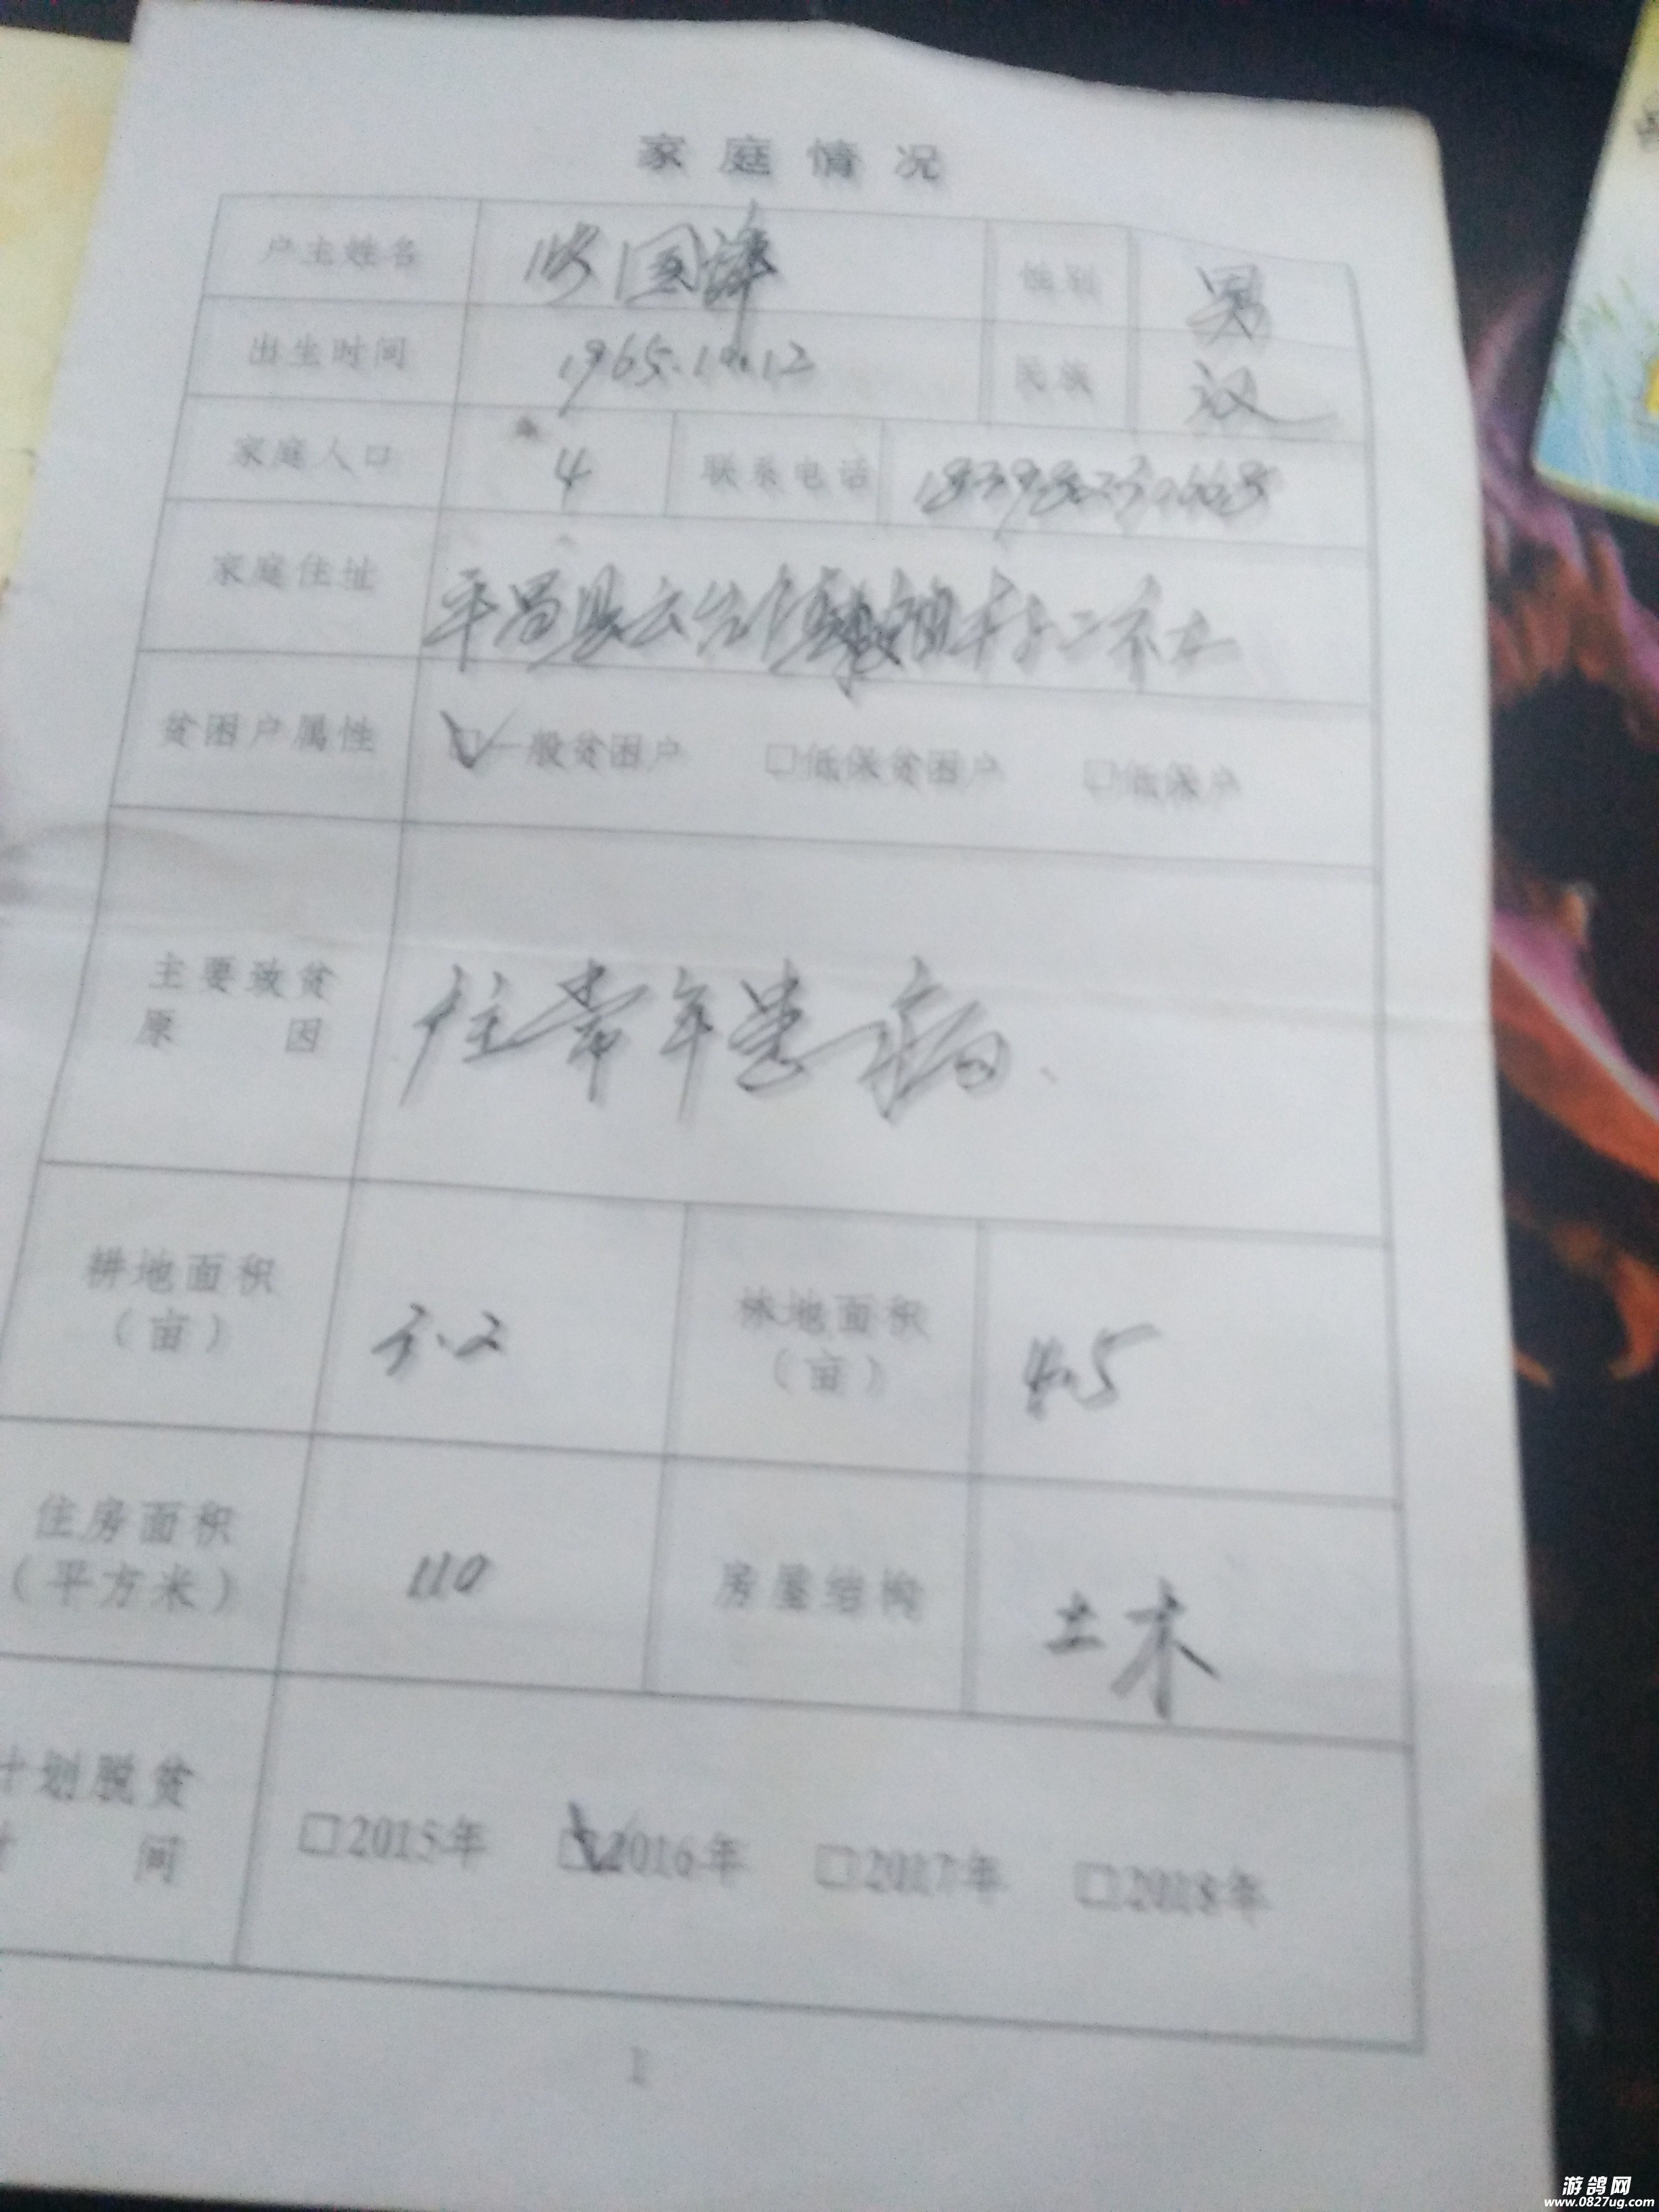 家庭情况
户主姓名 国 性别 男
出生时间 1965.10.12 民族 汉
家庭人口 4 联系电话
家庭住址 平昌县云台镇 村二社
贫困户属性 □一般贫困户 □低保贫困户 □低保户
主要致贫
原 因
常年患病
耕地面积
(亩)
3.2
林地面积
(亩)
4.5
住房面积
(平方米)
110
房屋结构
土木
计划脱贫
时 间
□2015年 □2016年 □2017年 □2018年
1
游鸽网
www.0827ug.com